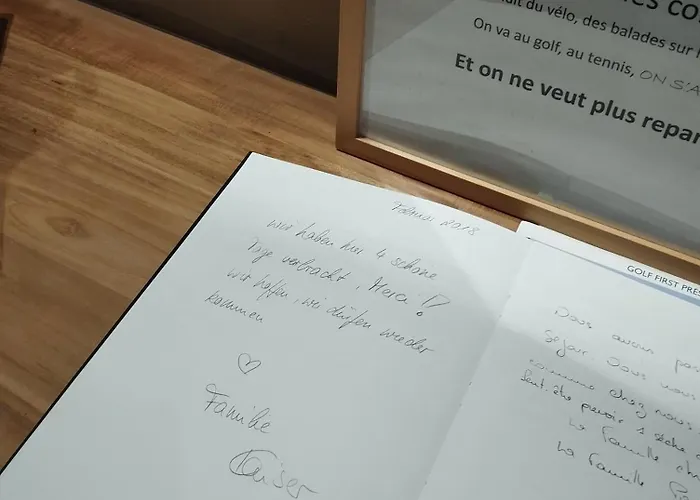 du vélo, des balades sur
On va au golf, au tennis, ON S'A
Et on ne veut plus repar
Februar 2018
wir haben hier 4 schöne
Tage verbracht, Merci!
wir hoffen, wir dürfen wieder
kommen
♡
Familie
Kaiser
GOLF FIRST PRES
Nous avons pas
séjour. Nous nous
comme chez nous
peut-être prévoir 1 sèche
La famille
La famille